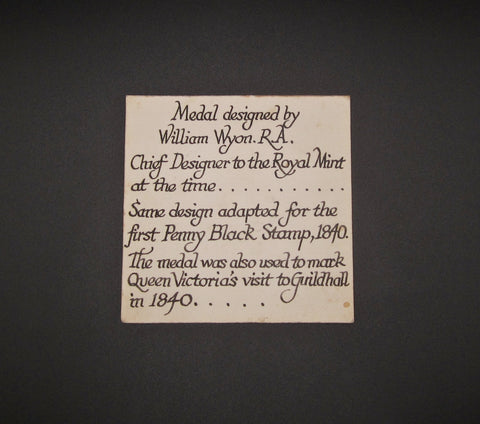 Medal designed by
William Wyon. R.A.
Chief Designer to the Royal Mint
at the time . . . . . . . . . . .
Same design adapted for the
first Penny Black Stamp, 1840.
The medal was also used to mark
Queen Victoria's visit to Guildhall
in 1840. . . . . .